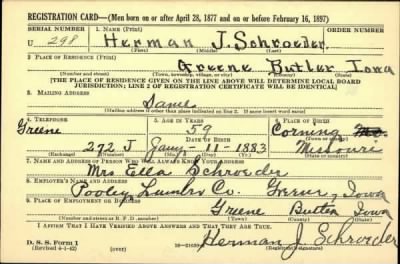 REGISTRATION CARD—(Men born on or after April 28, 1877 and on or before February 16, 1897)
SERIAL NUMBER
1. NAME (Print)
ORDER NUMBER
U 298
Herman J. Schroeder
(First) (Middle) (Last)
2. PLACE OF RESIDENCE (Print)
Greene Butler Iowa
(Number and street) (Town, township, village, or city) (County) (State)
[THE PLACE OF RESIDENCE GIVEN ON THE LINE ABOVE WILL DETERMINE LOCAL BOARD
JURISDICTION; LINE 2 OF REGISTRATION CERTIFICATE WILL BE IDENTICAL]
3. MAILING ADDRESS
Same
[Mailing address if other than place indicated on line 2. If same insert word same]
4. TELEPHONE
5. AGE IN YEARS
6. PLACE OF BIRTH
Greene
59
Corning
DATE OF BIRTH
272 J
Jany-11-1883
Missouri
7. NAME AND ADDRESS OF PERSON WHO WILL ALWAYS KNOW YOUR ADDRESS
Mrs Ella Schroeder
8. EMPLOYER'S NAME AND ADDRESS
Pooley Lumber Co. Greene, Iowa
9. PLACE OF EMPLOYMENT OR BUSINESS
Greene Butler Iowa
(Number and street or R. F. D. number) (Town) (County) (State)
I AFFIRM THAT I HAVE VERIFIED ABOVE ANSWERS AND THAT THEY ARE TRUE.
D. S. S. Form 1
(Revised 4-1-42)
Herman J. Schroeder